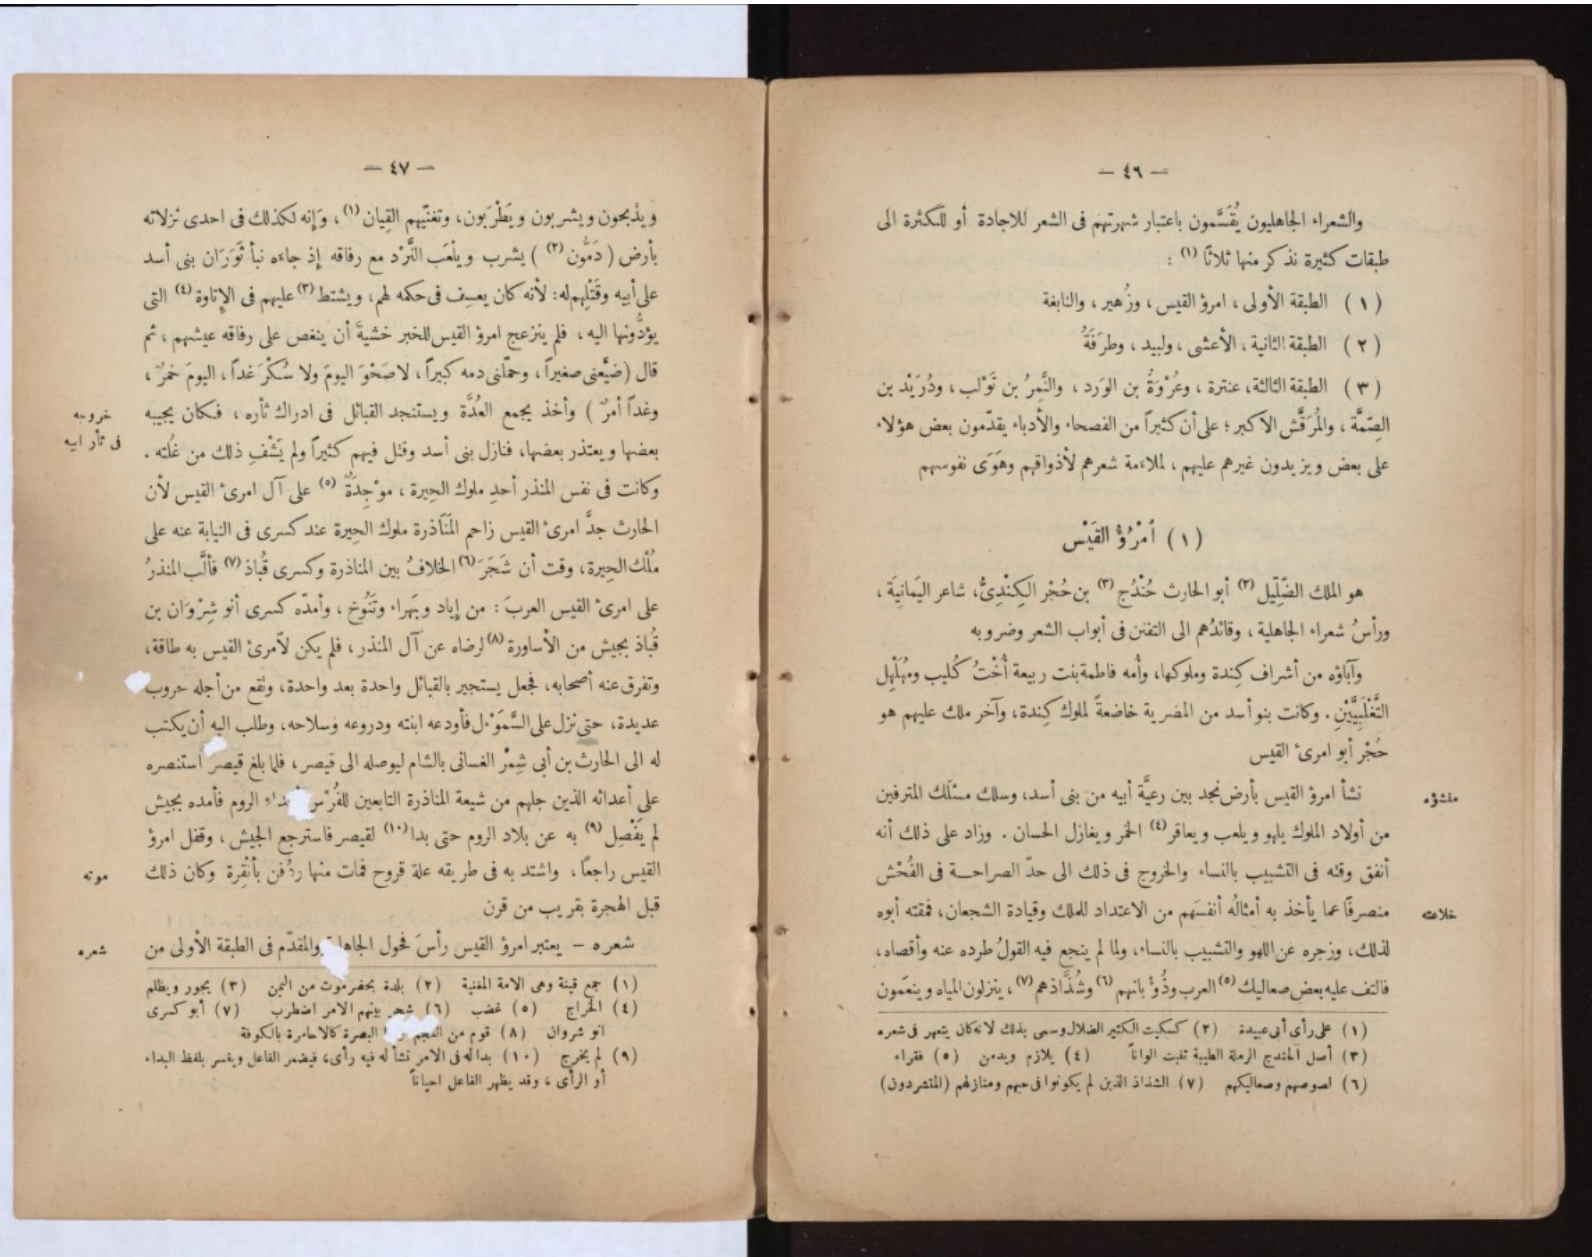 — ٤٦ —
والشعراء الجاهليون يُقَسَّمون باعتبار شهرتهم فى الشعر للاجادة أو للكثرة الى
طبقات كثيرة نذكر منها ثلاثًا (١) :
(١) الطبقة الأولى، امرؤ القيس، وزُهير، والنابغة
(٢) الطبقة الثانية، الأعشى، ولبيد، وطرَفَةُ
(٣) الطبقة الثالثة، عنترة، وعُرْوَةُ بن الوَرد، والنَّمِرُ بن تَوْلب، ودُرَيْد بن
الصِّمَّة، والمُرَقَّش الاكبر؛ على أن كثيراً من الفصحاء والأدباء يقدّمون بعض هؤلاء
على بعض ويزيدون غيرهم عليهم، لملاءمة شعرهم لأذواقهم وهَوَى نفوسهم
(١) اُمْرُؤُ القَيْس
هو الملك الضَّلِّيل (٢) أبو الحارث حُنْدُج (٣) بن حُجْر الكِنْدِىُّ، شاعر اليَمانيَة،
ورأسُ شعراء الجاهلية، وقائدُهم الى التفنن فى أبواب الشعر وضروبه
وآباؤه من أشراف كِندة وملوكها، وأمه فاطمة بنت ربيعة أُخْتُ كُليب ومهُلَهْل
التَّغْلَبِيَّيْنِ. وكانت بنو أسد من المضرية خاضعةً لملوك كِندة، وآخر ملك عليهم هو
حُجْر أبو امرئ القيس
منشؤه
نشأ امرؤ القيس بأرض نجد بين رعيَّة أبيه من بنى أسد، وسلك مسْلَك المترفين
من أولاد الملوك يلهو ويلعب ويعاقر (٤) الخمر ويغازل الحسان. وزاد على ذلك أنه
أنفق وقته فى التشبيب بالنساء والخروج فى ذلك الى حدّ الصراحة فى الفُحْش
خلاعته
منصرفًا عما يأخذ به أمثالُه أنفسَهم من الاعتداد للملك وقيادة الشجعان، فمقته أبوه
لذلك، وزجره عن اللهو والتشبيب بالنساء، ولما لم ينجع فيه القولُ طرده عنه وأقصاه،
فالتف عليه بعض صعاليك (٥) العرب وذُؤْبانهم (٦) وشُذَّاذهم (٧)، ينزلون المياه وينعَمون
(١) على رأى أبى عبيدة (٢) كسكيت الكثير الضلال وسمى بذلك لانه كان يتعهر فى شعره
(٣) أصل الحندج الرملة الطيبة تنبت الواناً (٤) يلازم ويدمن (٥) فقراء
(٦) لصوصهم وصعاليكهم (٧) الشذاذ الذين لم يكونوا فى حيهم ومنازلهم (المتشردون)
— ٤٧ —
ويذْبحون ويشربون ويَطْرَبون، وتغنيّهم القِيان (١)، وَإنه لكذلك فى احدى نزلاته
بأرض (دَمُّون (٢)) يشرب ويلْعَب النَّرْد مع رفاقه إذ جاءه نبأ ثَوَرَان بنى أسد
على أبيه وقَتْلِهِم له: لأنه كان يعسِف فى حكمه لهم، ويشتط (٣) عليهم فى الإتاوة (٤) التى
يؤدُّونها اليه، فلم ينزعج امرؤ القيس للخبر خشيةَ أن ينغص على رفاقه عيشهم، ثم
قال (ضيَّعنى صغيراً، وحمّلنى دمه كبيراً، لا صَحْوَ اليومَ ولا سُكْرَ غداً، اليومَ خمرٌ،
خروجه
فى ثأر ابيه
وغداً أمرٌ) وأخذ يجمع العُدَّة ويستنجد القبائل فى ادراك ثأره، فكان يجيبه
بعضها ويعتذر بعضها، فنازل بنى أسد وقتل فيهم كثيراً ولم يَشْفِ ذلك من غُلته.
وكانت فى نفس المنذر أحدِ ملوك الحِيرة، موْجِدَةٌ (٥) على آل امرئ القيس لأن
الحارث جدَّ امرئ القيس زاحم المَنَاذرة ملوك الحِيرة عند كسرى فى النيابة عنه على
مُلْك الحِيرة، وقت أن شَجَرَ (٦) الخلافُ بين المناذرة وكسرى قُباذ (٧) فألَّب المنذرُ
على امرئ القيس العربَ: من إياد وبَهراء وتَنُوخ، وأمدّه كسرى أنو شِرْوَان بن
قُباذ بجيش من الأساورة (٨) لرضاه عن آل المنذر، فلم يكن لاَمرئ القيس به طاقة،
وتفرق عنه أصحابه، فجعل يستجير بالقبائل واحدة بعد واحدة، وتقع من أجله حروب
عديدة، حتى نزل على السَّمَوْءل فأودعه ابنته ودروعه وسلاحه، وطلب اليه أن يكتب
له الى الحارث بن أبى شِمْر الغسانى بالشام ليوصله الى قيصر، فلما بلغ قيصر استنصره
على أعدائه الذين جلهم من شيعة المناذرة التابعين للفُرْس الروم فأمده بجيش
لم يَفْصِل (٩) به عن بلاد الروم حتى بدا (١٠) لقيصر فاسترجع الجيش، وقفل امرؤ
موته
القيس راجعًا، واشتد به فى طريقه علة قروح فمات منها ودُفن بأنْقِرة وكان ذلك
قبل الهجرة بقريب من قرن
شعره
شعره – يعتبر امرؤ القيس رأسَ فحول الجاهلية والمقدّم فى الطبقة الأولى من
(١) جمع قينة وهى الامة المغنية (٢) بلدة بحضرموت من اليمن (٣) يجور ويظلم
(٤) الخراج (٥) غضب (٦) شجر بينهم الامر اضطرب (٧) أبو كسرى
انو شروان (٨) قوم من العجم البصرة كالاحامرة بالكوفة
(٩) لم يخرج (١٠) بدا له فى الامر نشأ له فيه رأى، فيضمر الفاعل ويفسر بلفظ البداء
أو الرأى، وقد يظهر الفاعل احياناً